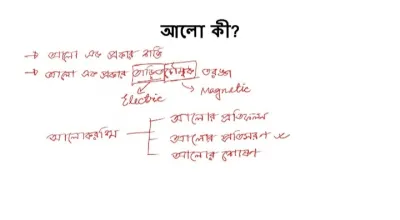 আলো কী?
→ আলো এক প্রকার শক্তি
→ আলো এক প্রকার তাড়িতচৌম্বক তরঙ্গ
Electric Magnetic
আলোর প্রতিফলন
আলোকরশ্মি আলোর প্রতিসরণ
আলোর শোষণ